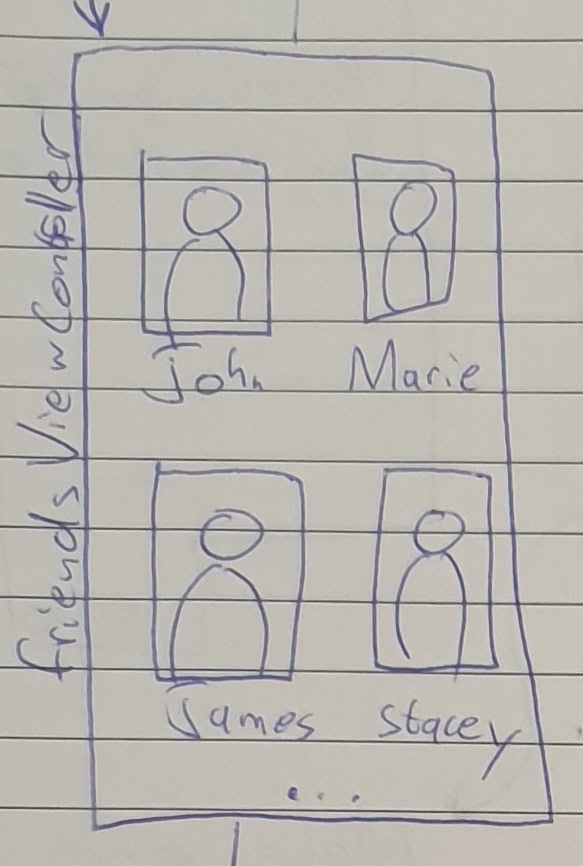 friends ViewController
John Marie
James Stacey
...